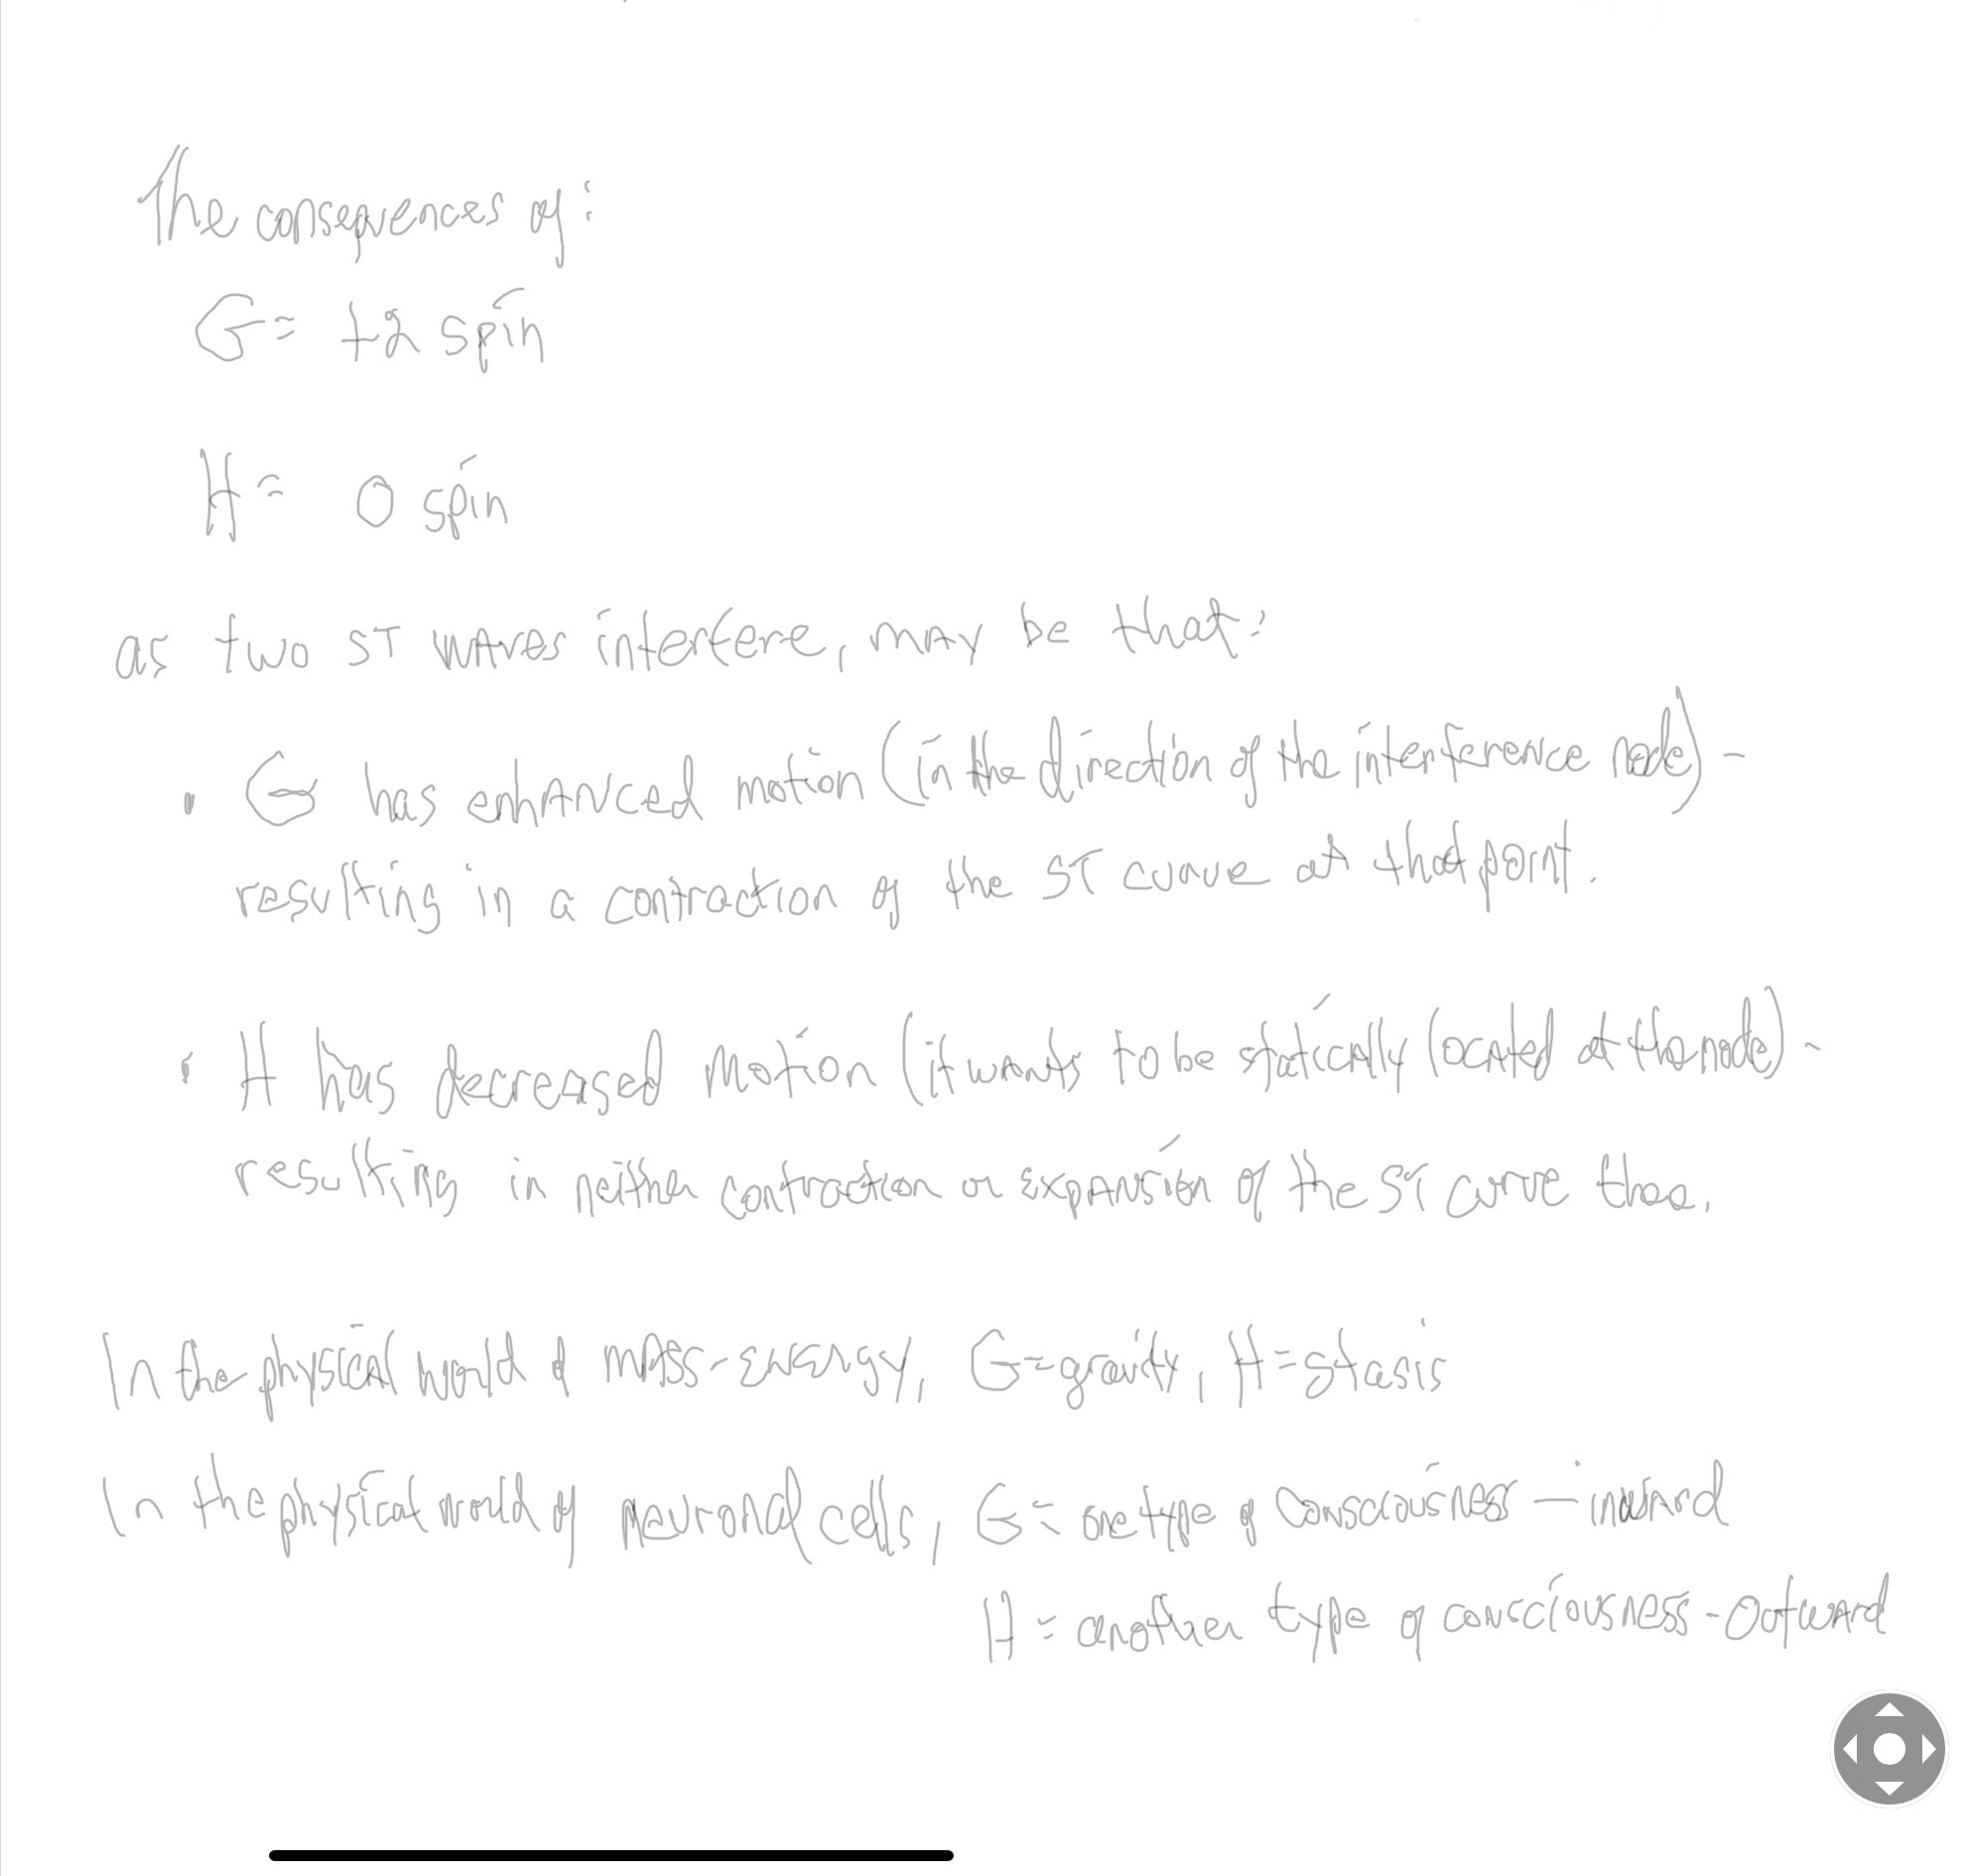 The consequences of:
G = +2 spin
H = 0 spin
as two ST waves interfere, may be that:
• G has enhanced motion (in the direction of the interference node) –
resulting in a contraction of the ST curve at that point.
• H has decreased motion (it wants to be statically located at the node) –
resulting in neither contraction or expansion of the ST curve there.
In the physical world of mass-energy, G = gravity, H = stasis
In the physical world of neuronal cells, G = one type of consciousness – inward
H = another type of consciousness - outward